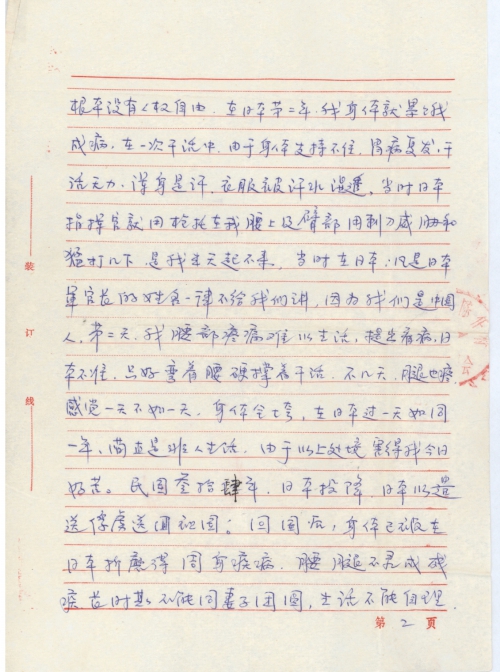 根本没有人权自由。在日本第二年，我身体就累
成病，在一次干活中，由于身体支持不住，得病复发，干
活无力，浑身是汗，衣服被汗水湿透，当时日本
指挥官就用枪托在我腰上及臂部用刺刀威胁和
猛打几下，是我半天起不来，当时在日本，凡是日本
军官茋的姓名一律不给我们讲，因为我们是中国
人，第二天，我腰部疼痛难以生活，提出看病，日
本不准，只好弯着腰硬撑着干活，不几天，腿也疼
感觉一天不如一天，身体全垮，在日本过一天如同
一年，简直是非人生活，由于以上处境害得我今日
好苦。民国叁拾肆年，日本投降，日本以遣
送俘虏送回祖国；回国后，身体已被在
日本折磨得周身疾病，腰腿不灵成残
疾 当时 不能同妻子团圆，生活不能自理
装
订
线
第 2 頁